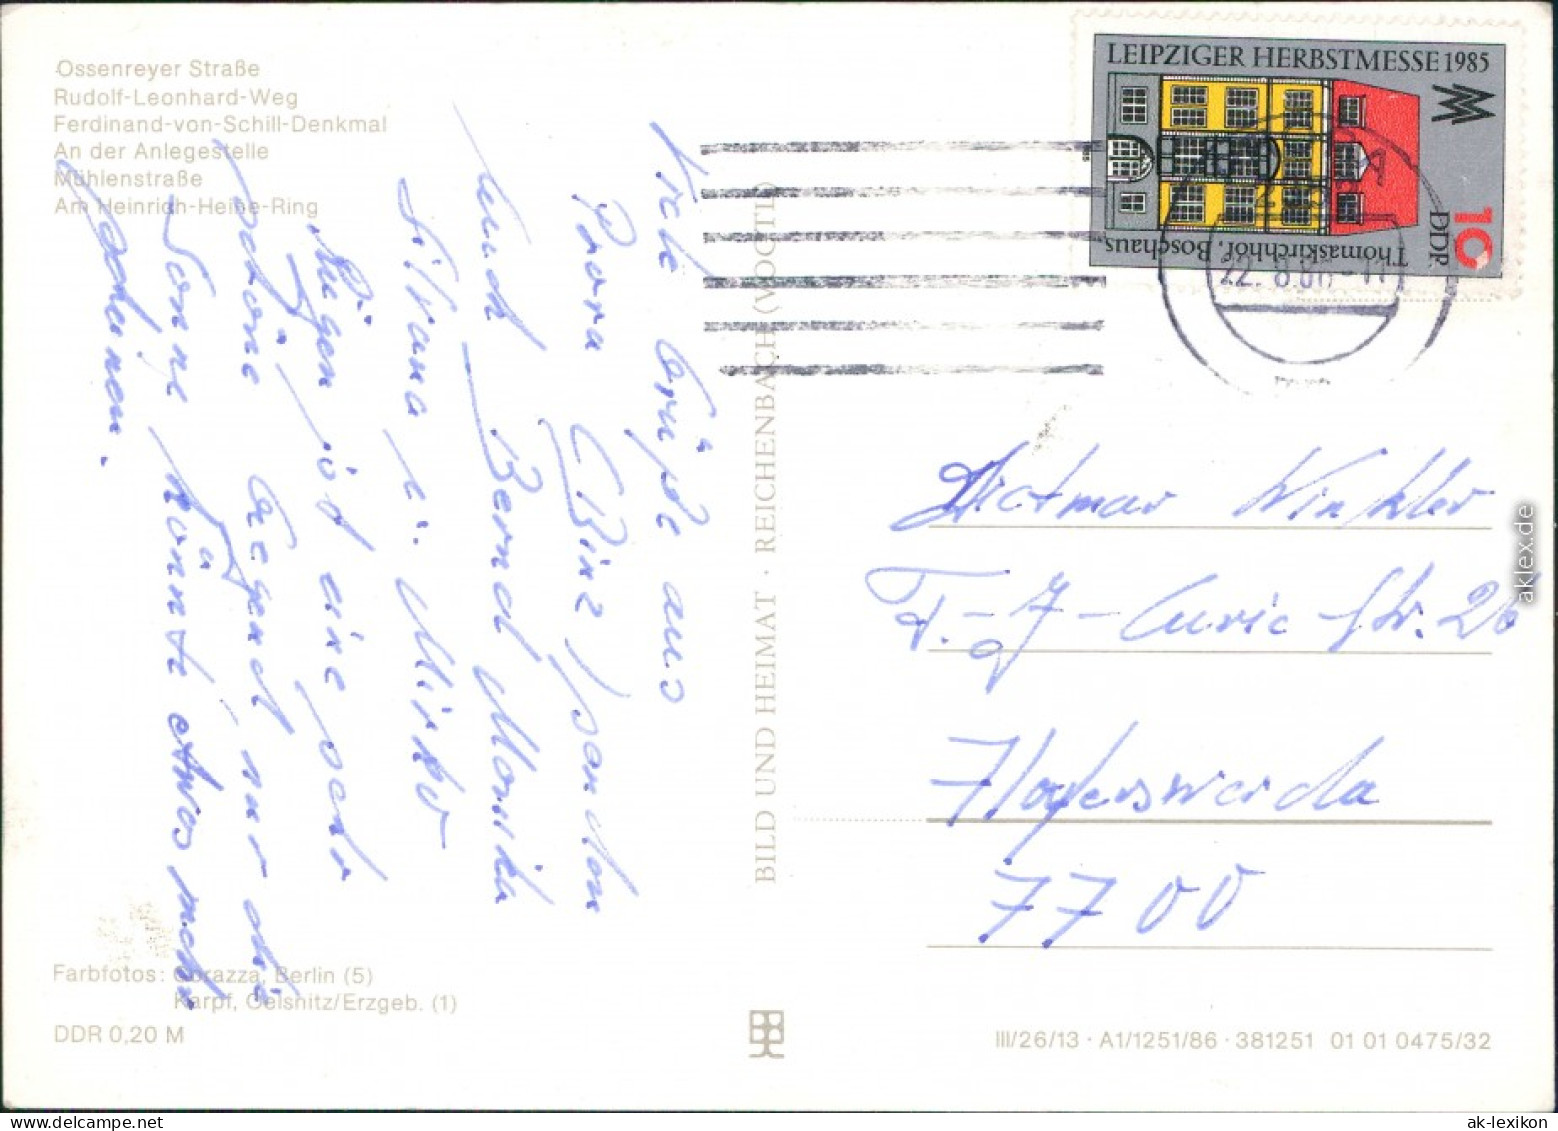 Ossenreyer Straße
Rudolf-Leonhard-Weg
Ferdinand-von-Schill-Denkmal
An der Anlegestelle
Mühlenstraße
Am Heinrich-Heine-Ring
Viele Grüße aus
Prora (Binz) senden
Euch Bernd Monika
Silvana u. Mirko
Rügen ist eine sehr
schöne Gegend, nur die
Sonne könnte etwas mehr
scheinen.
Farbfotos: Corazza, Berlin (5)
Karpf, Oelsnitz/Erzgeb. (1)
DDR 0,20 M
BILD UND HEIMAT · REICHENBACH (VOGTL)
LEIPZIGER HERBSTMESSE 1985
Thomaskirchhof, Boschaus
DDR
10
22. 8.86-11
Dietmar Winkler
F.-J.-Curie-Str. 26
Hoyerswerda
7700
III/26/13 · A1/1251/86 · 381251 01 01 0475/32
aklex.de
ak-lexikon